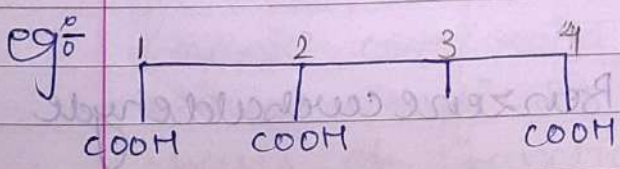 eg:
1 2 3 4
COOH COOH COOH